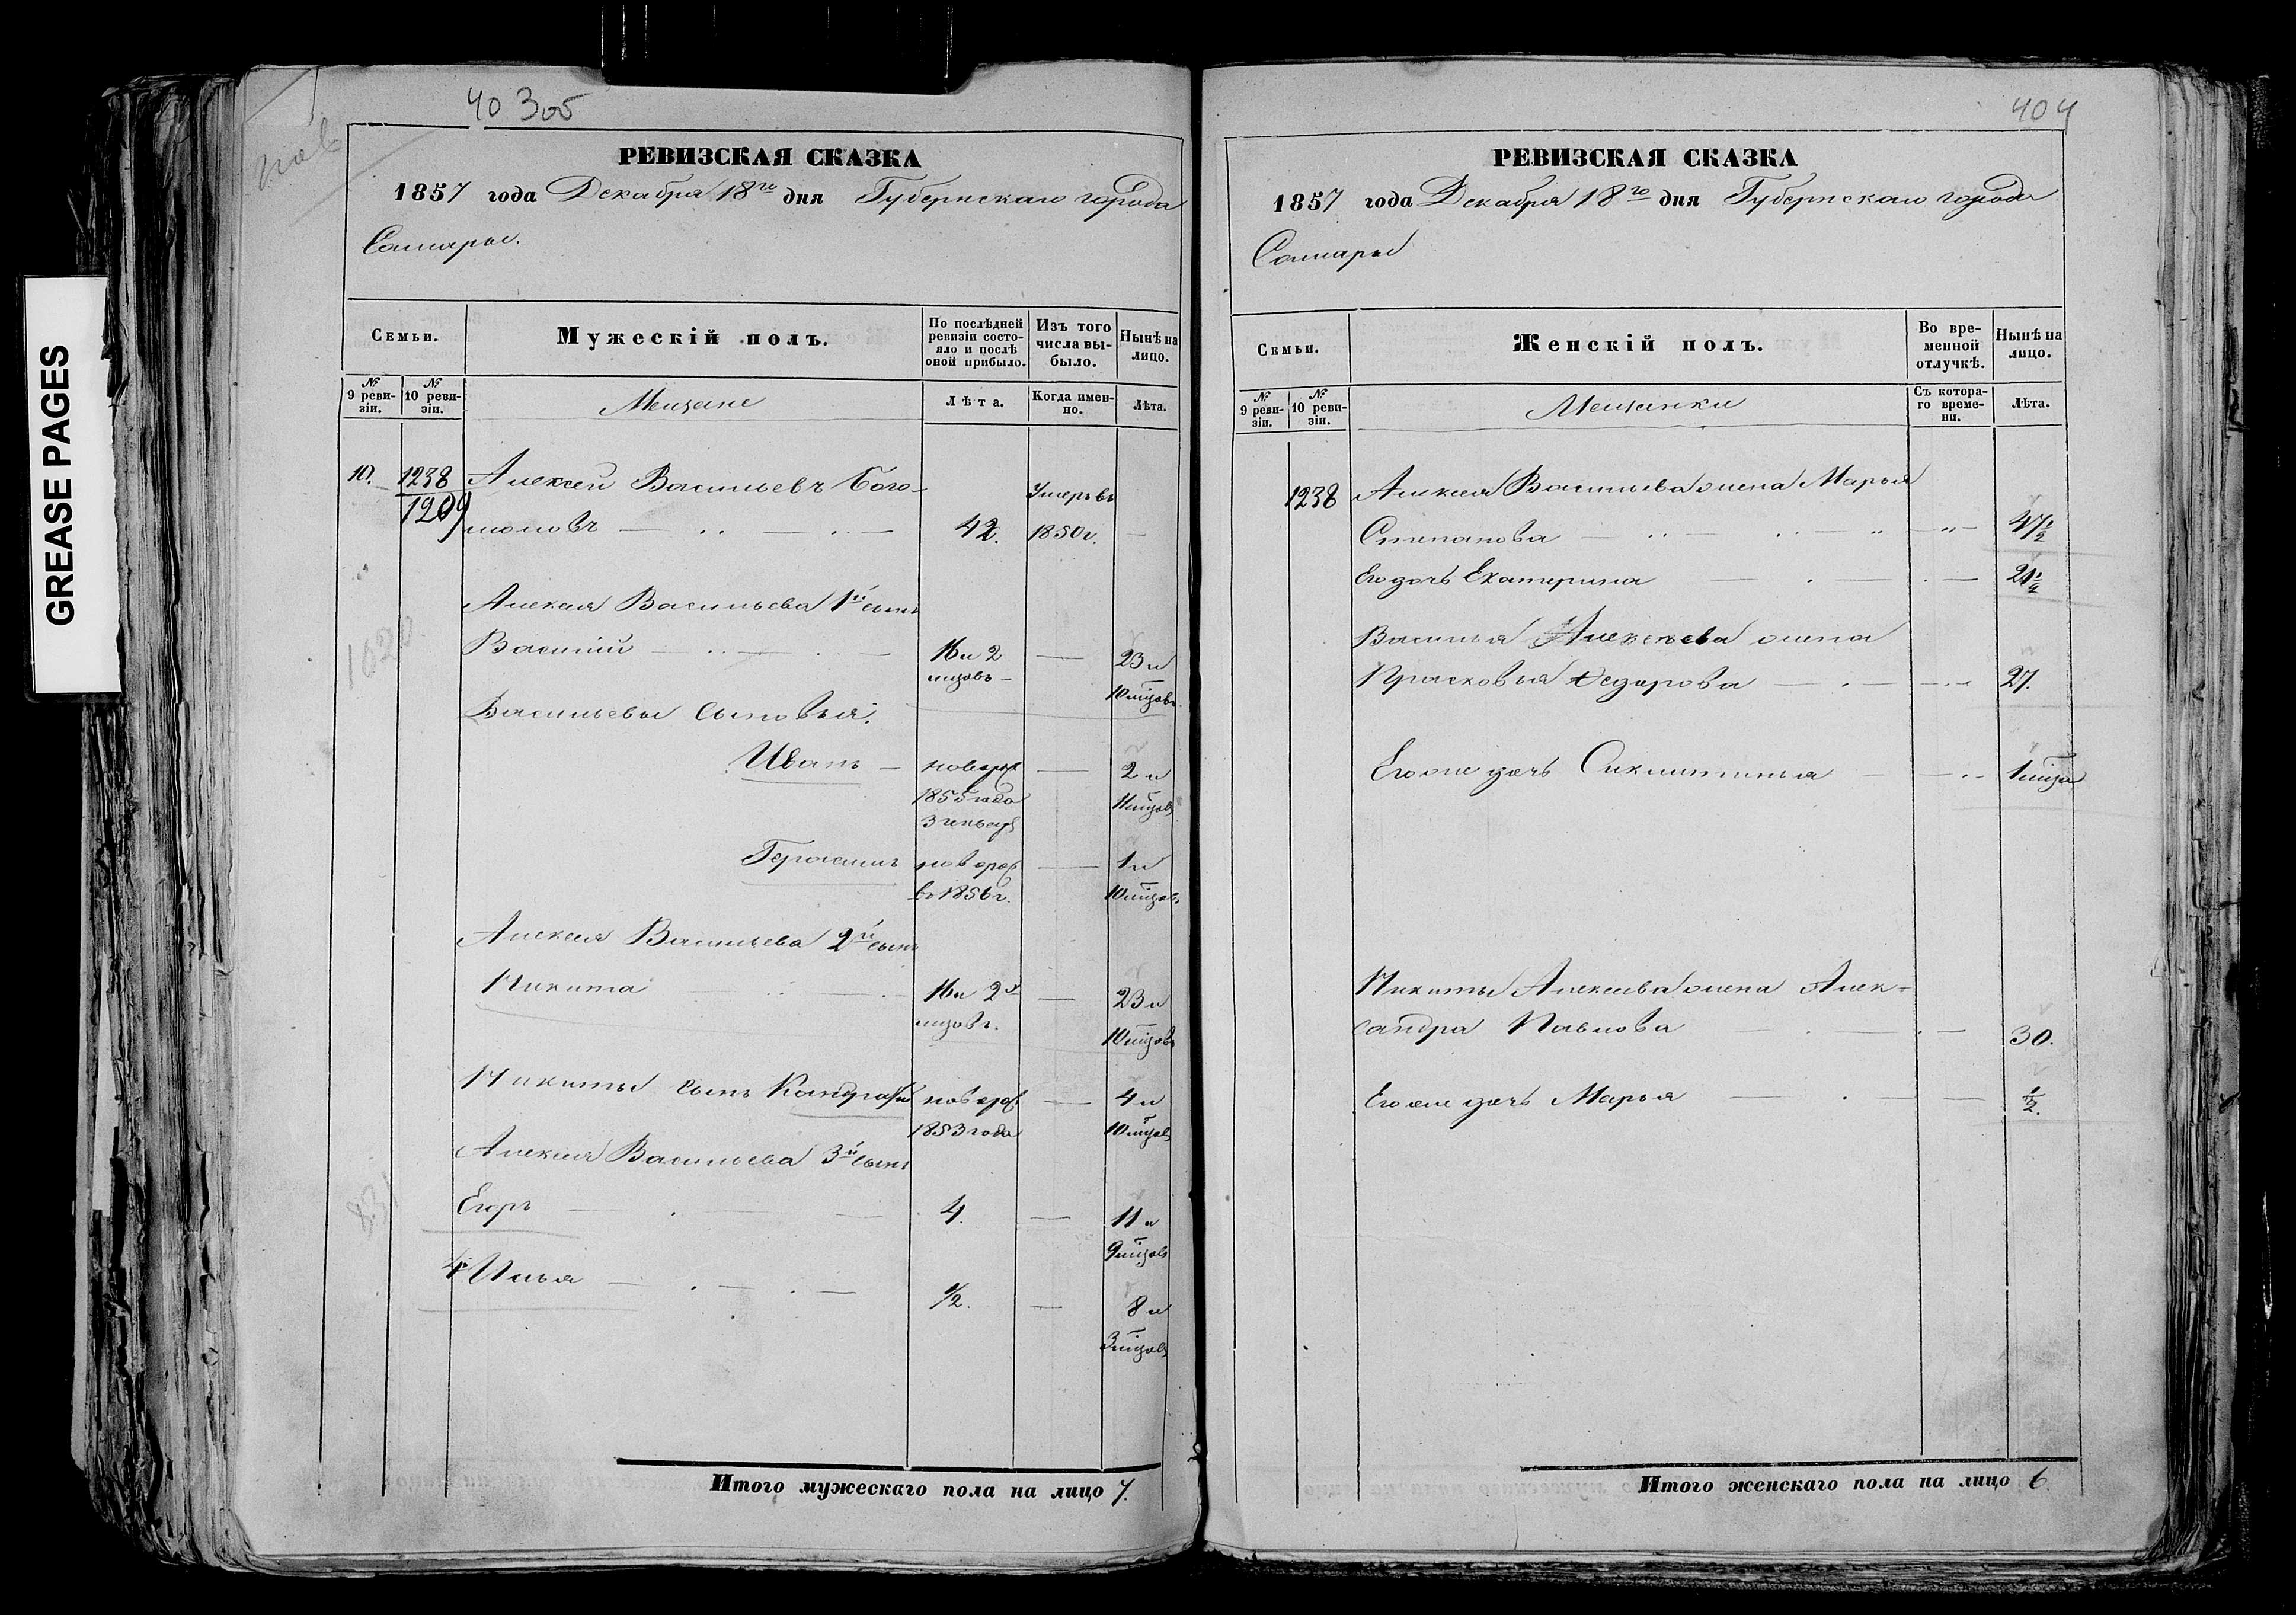 GREASE PAGES
40 305
РЕВИЗСКАЯ СКАЗКА
1857 года Декабря 18го дня Губернскаго города
Самары.
Семьи.
Мужескій полъ.
По послѣдней ревизіи состояло и послѣ оной прибыло.
Изъ того числа выбыло.
Нынѣ на лицо.
№ 9 ревизіи.
№ 10 ревизіи.
Мещане
Лѣта.
Когда именно.
Лѣта.
10. 1238 Алексей Васильевъ Бого- Умеръ въ
1209 моловъ 42. 1850г. —
Алексея Васильева 1й сынъ
Василий 16 и 2 — 23 и
мцовъ 10 мцовъ
Васильевы сыновья.
Иванъ — новорож — 2 и
1855 года 11 мцовъ
3 генваря
Герасимъ новорож — 1 и
въ 1856г. 10 мцовъ
Алексея Васильева 2й сынъ
Никита 16 и 2х — 23 и
мцовъ. 10 мцовъ
Никиты сынъ Кондратий новорож — 4 и
1853 года 10 мцовъ
Алексея Васильева 3й сынъ
Егоръ 4. — 11 и
9 мцовъ
4й Илья 1/2. — 8 и
3 мцовъ
Итого мужескаго пола на лицо 7.
404
РЕВИЗСКАЯ СКАЗКА
1857 года Декабря 18го дня Губернскаго города
Самары
Семьи.
Женскій полъ.
Во временной отлучкѣ.
Нынѣ на лицо.
№ 9 ревизіи.
№ 10 ревизіи.
Мещанки
Съ котораго времени.
Лѣта.
1238 Алексея Васильева жена Марья
Степанова — " — 47 1/2
Его дочь Екатерина — 21 1/2
Василья Алексеева жена
Прасковья Федорова — 27.
Его же дочь 1 мца
Никиты Алексеева жена Алек-
сандра Павлова — 30.
Его же дочь Марья — 1/2.
Итого женскаго пола на лицо 6.